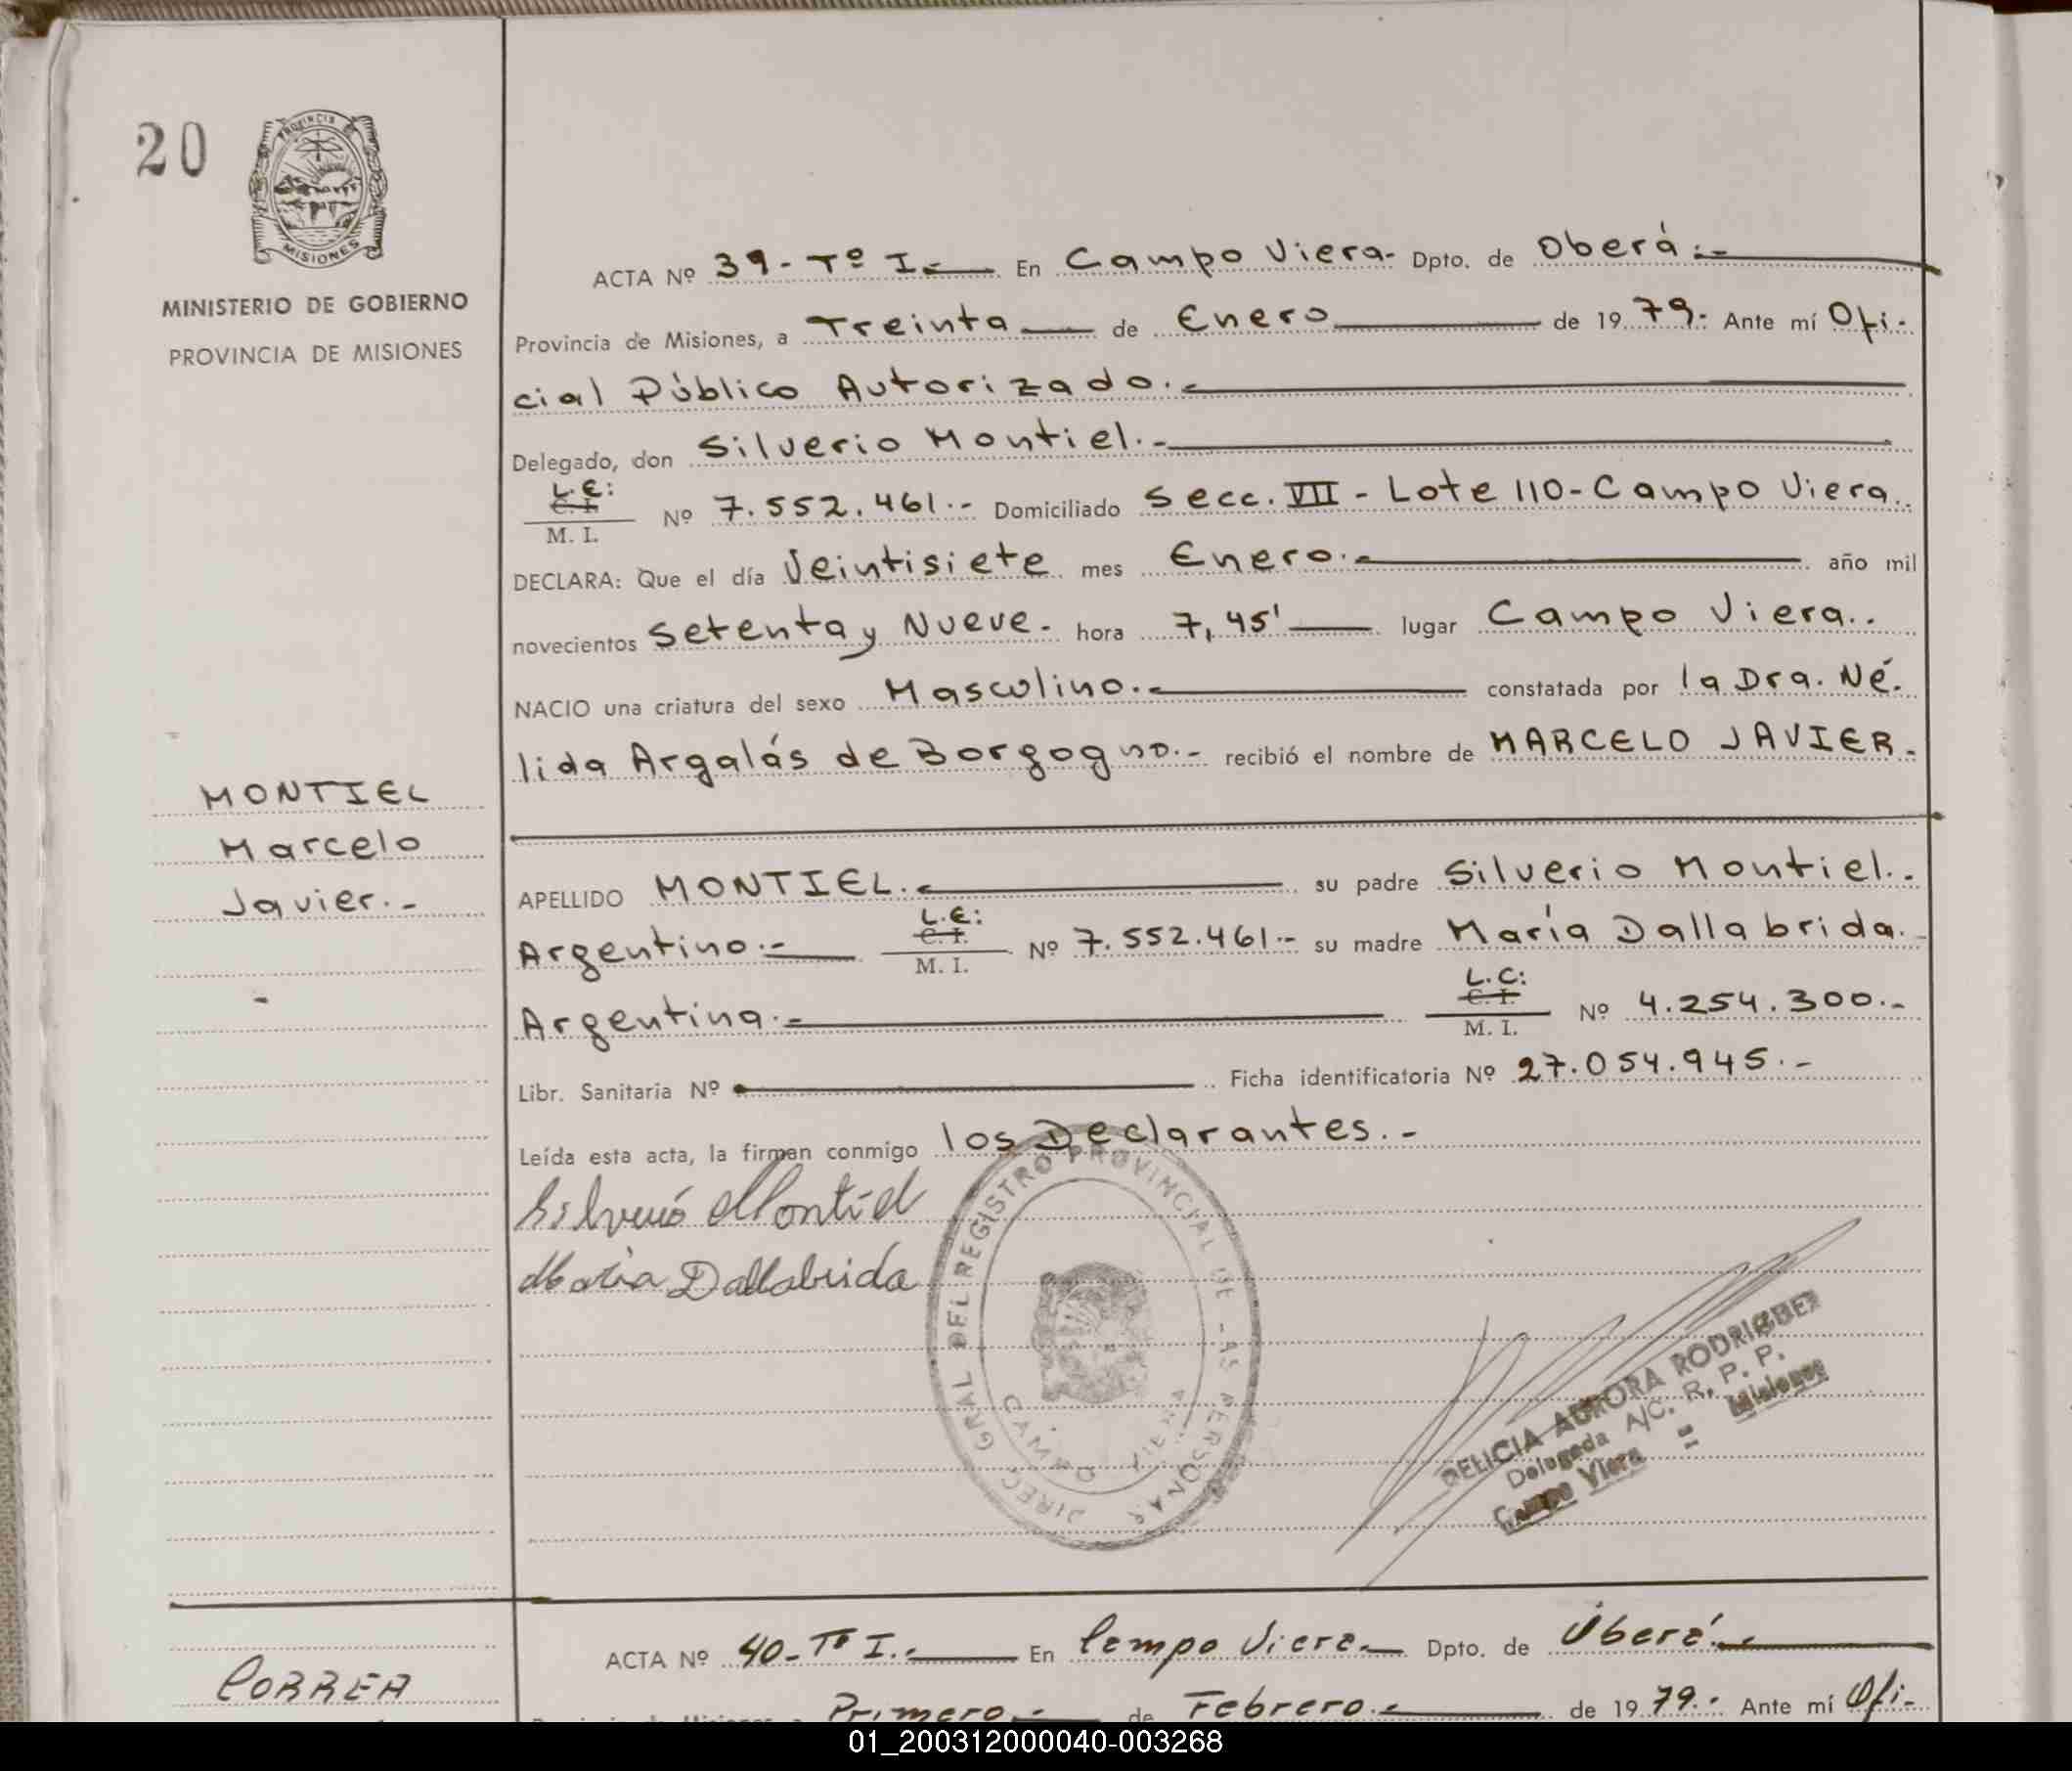 20
PROVINCIA DE
MISIONES
MINISTERIO DE GOBIERNO
PROVINCIA DE MISIONES
ACTA Nº 39-Tº I.- En Campo Viera- Dpto. de Oberá.-
Provincia de Misiones, a Treinta de Enero de 1979.- Ante mí Ofi-
cial Público Autorizado.-
Delegado, don Silverio Montiel.-
L.E:
C. I.
M. I. Nº 7.552.461.- Domiciliado Secc. VII - Lote 110-Campo Viera..
DECLARA: Que el día Veintisiete mes Enero.- año mil
novecientos Setenta y Nueve- hora 7,45' lugar Campo Viera..
NACIO una criatura del sexo Masculino.- constatada por la Dra. Né-
lida Argalás de Borgogno.- recibió el nombre de MARCELO JAVIER.-
MONTIEL
Marcelo
Javier.-
APELLIDO MONTIEL.- su padre Silverio Montiel.-
L.E:
C. I.
Argentino.- M. I. Nº 7.552.461.- su madre María Dallabrida.-
L.C:
C. I.
Argentina.- M. I. Nº 4.254.300.-
Libr. Sanitaria Nº Ficha identificatoria Nº 27.054.945.-
Leída esta acta, la firman conmigo los Declarantes.-
Silverio Montiel
Maria Dallabrida
DIREC. GRAL DEL REGISTRO PROVINCIAL DE LAS PERSONAS
CAMPO VIERA
DELICIA AURORA RODRIGUEZ
Delegada A/C. R. P. P.
Campo Viera = Misiones
ACTA Nº 40-Tº I.- En Campo Viera.- Dpto. de Oberá.-
CORREA
Primero.- de Febrero.- de 1979.- Ante mí Ofi-
01_200312000040-003268